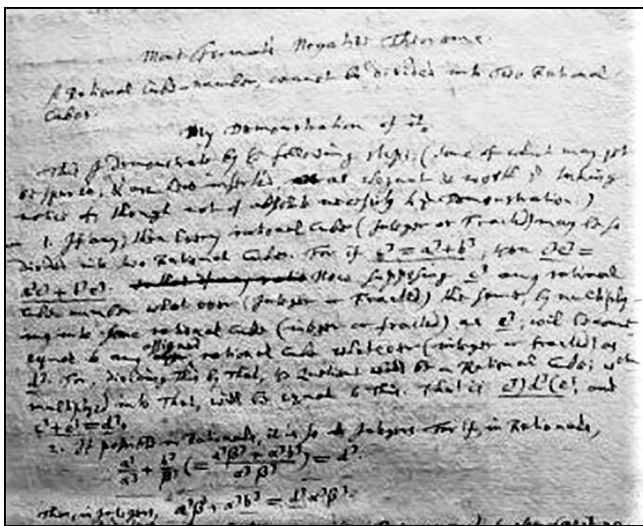 Mons. Fermat's Negative Theoreme.
A Rational Cube-number, cannot be divided into Two Rational
Cubes.
My Demonstration of it.
This I Demonstrate by following steps; (some of which may yet
be spared, & are but inserted, as elegant & worth taking
notice of, though not of absolute necessity to Demonstration.)
1. If any; then Every rational Cube (Integer or Fracted) may be so
divided into two Rational Cubes. For if c³ = a³ + b³, =
+ Now supposing c³ any rational
Cube number what ever (Integer or Fracted) the same, by multiply-
ing into some rational Cube (integer or fracted) as e³, will become
equal to any assigned rational Cube whatever (integer or fracted) as
d³. For, dividing this by That, Quotient will be a Rational Cube; wch
multiplyed into That, will be equal to this. That is c³) d³ (e³, and
c³e³ = d³.
2. If possible in Rationals, it is so in Integers. For if, in Rationals,
a³/α³ + b³/β³ (= a³β³ + α³b³ / α³β³) = d³.
Then, in Integers, a³β³ + α³b³ = d³α³β³.